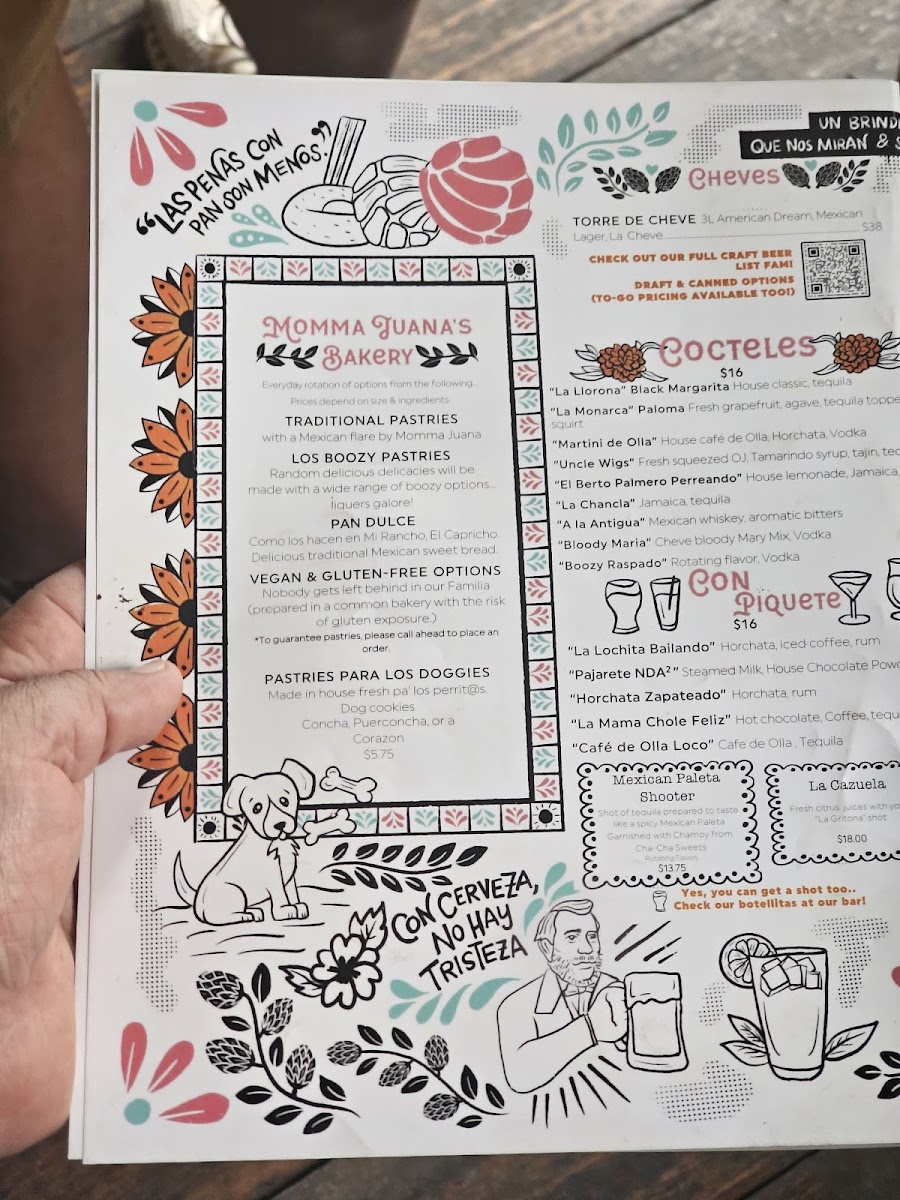 “LAS PENAS CON
PAN SON MENOS.”
MOMMA JUANA'S
BAKERY
Everyday rotation of options from the following...
Prices depend on size & ingredients
TRADITIONAL PASTRIES
with a Mexican flare by Momma Juana
LOS BOOZY PASTRIES
Random delicious delicacies will be
made with a wide range of boozy options...
liquers galore!
PAN DULCE
Como los hacen en Mi Rancho, El Capricho.
Delicious traditional Mexican sweet bread.
VEGAN & GLUTEN-FREE OPTIONS
Nobody gets left behind in our Familia
(prepared in a common bakery with the risk
of gluten exposure.)
*To guarantee pastries, please call ahead to place an
order.
PASTRIES PARA LOS DOGGIES
Made in house fresh pa' los perrit@s.
Dog cookies
Concha, Puerconcha, or a
Corazon
$5.75
CON CERVEZA,
NO HAY
TRISTEZA
UN BRIND
QUE NOS MIRAN &
CHEVES
TORRE DE CHEVE 3L American Dream, Mexican
Lager, La Cheve $38
CHECK OUT OUR FULL CRAFT BEER
LIST FAM!
DRAFT & CANNED OPTIONS
(TO-GO PRICING AVAILABLE TOO!)
COCTELES
$16
"La Llorona" Black Margarita House classic, tequila
"La Monarca" Paloma Fresh grapefruit, agave, tequila toppe
squirt
"Martini de Olla" House café de Olla, Horchata, Vodka
"Uncle Wigs" Fresh squeezed OJ, Tamarindo syrup, tajin, teq
"El Berto Palmero Perreando" House lemonade, Jamaica,
"La Chancla" Jamaica, tequila
"A la Antigua" Mexican whiskey, aromatic bitters
"Bloody Maria" Cheve bloody Mary Mix, Vodka
"Boozy Raspado" Rotating flavor, Vodka
CON
PIQUETE
$16
"La Lochita Bailando" Horchata, iced coffee, rum
"Pajarete NDA²" Steamed Milk, House Chocolate Powd
"Horchata Zapateado" Horchata, rum
"La Mama Chole Feliz" Hot chocolate, Coffee, tequ
"Café de Olla Loco" Cafe de Olla , Tequila
Mexican Paleta
Shooter
Shot of tequila prepared to taste
like a spicy Mexican Paleta
Garnished with Chamoy from
Cha-Cha Sweets
Rotating Flavors
$13.75
La Cazuela
Fresh citrus juices with yo
"La Gritona" shot
$18.00
Yes, you can get a shot too..
Check our botellitas at our bar!